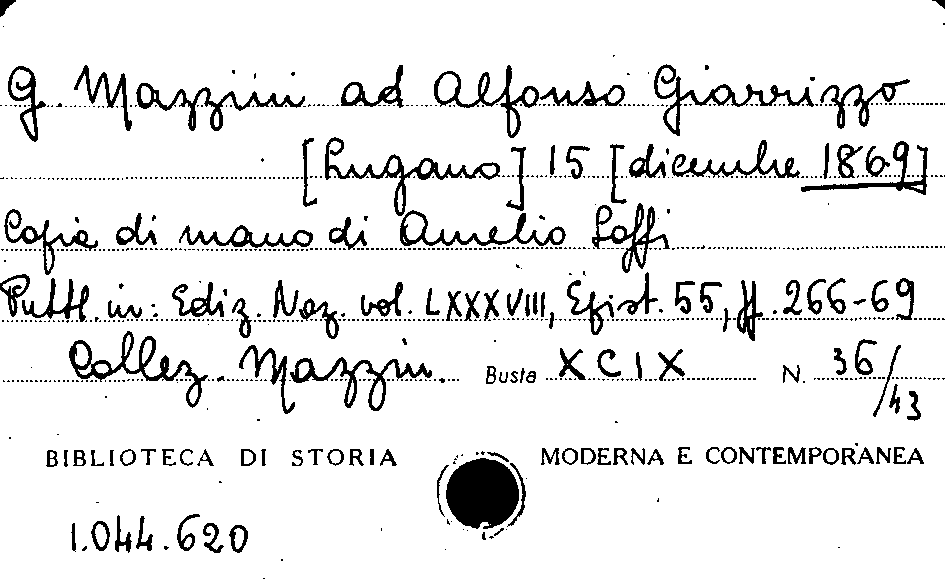 G. Mazzini ad Alfonso Giarrizzo
[Lugano] 15 [dicembre 1869]
Copia di mano di Aurelio Saffi
Pubbl. in: Ediz. Naz. vol. LXXXVIII, Epist. 55, pp. 266-69
Collez. Mazzin. Busta XCIX N. 36/43
BIBLIOTECA DI STORIA MODERNA E CONTEMPORANEA
1.044.620